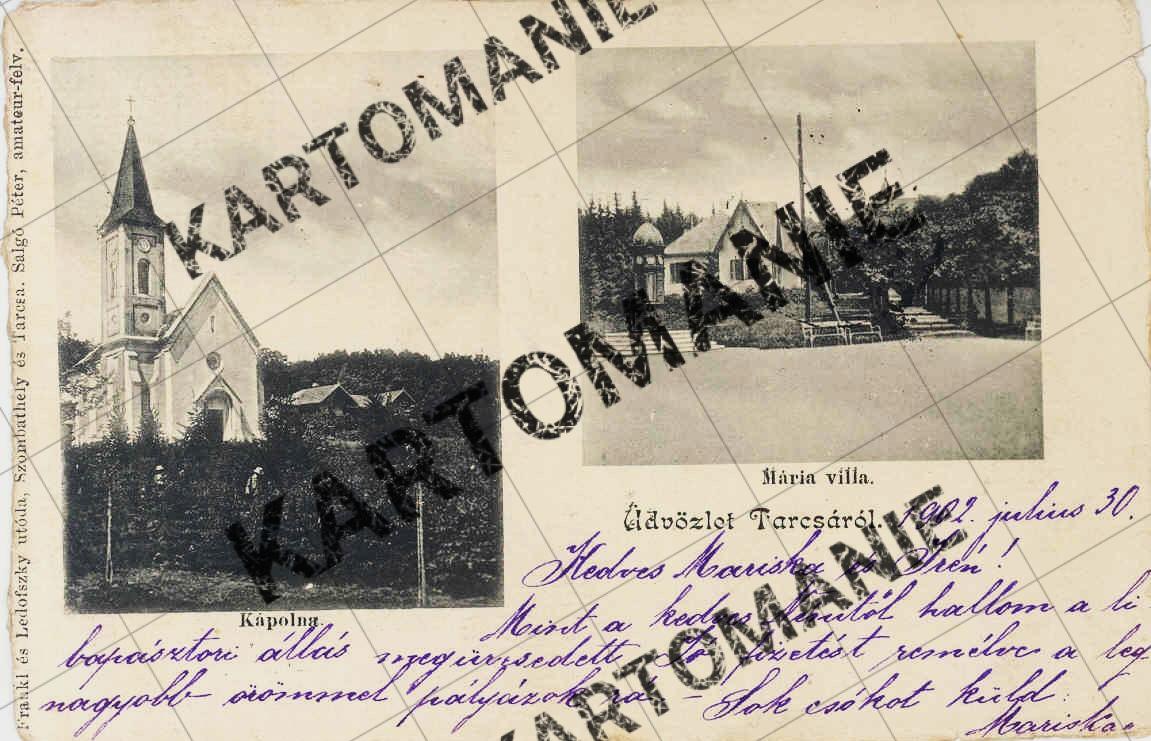 Frankl és Ledofszky utóda, Szombathely és Tarcsa. Salgó Péter, amateur-felv.
KARTOMANIE
KARTOMANIE
KARTOMANIE
KARTOMANIE
Mária villa.
Kápolna.
Üdvözlet Tarcsáról.
1902. julius 30.
Kedves Mariska és Irén!
Mint a kedves hallom a li
bapásztori állás megüresedett Jó fizetést remélve a leg
nagyobb örömmel pályázok rá - Sok csókot küld
Mariska